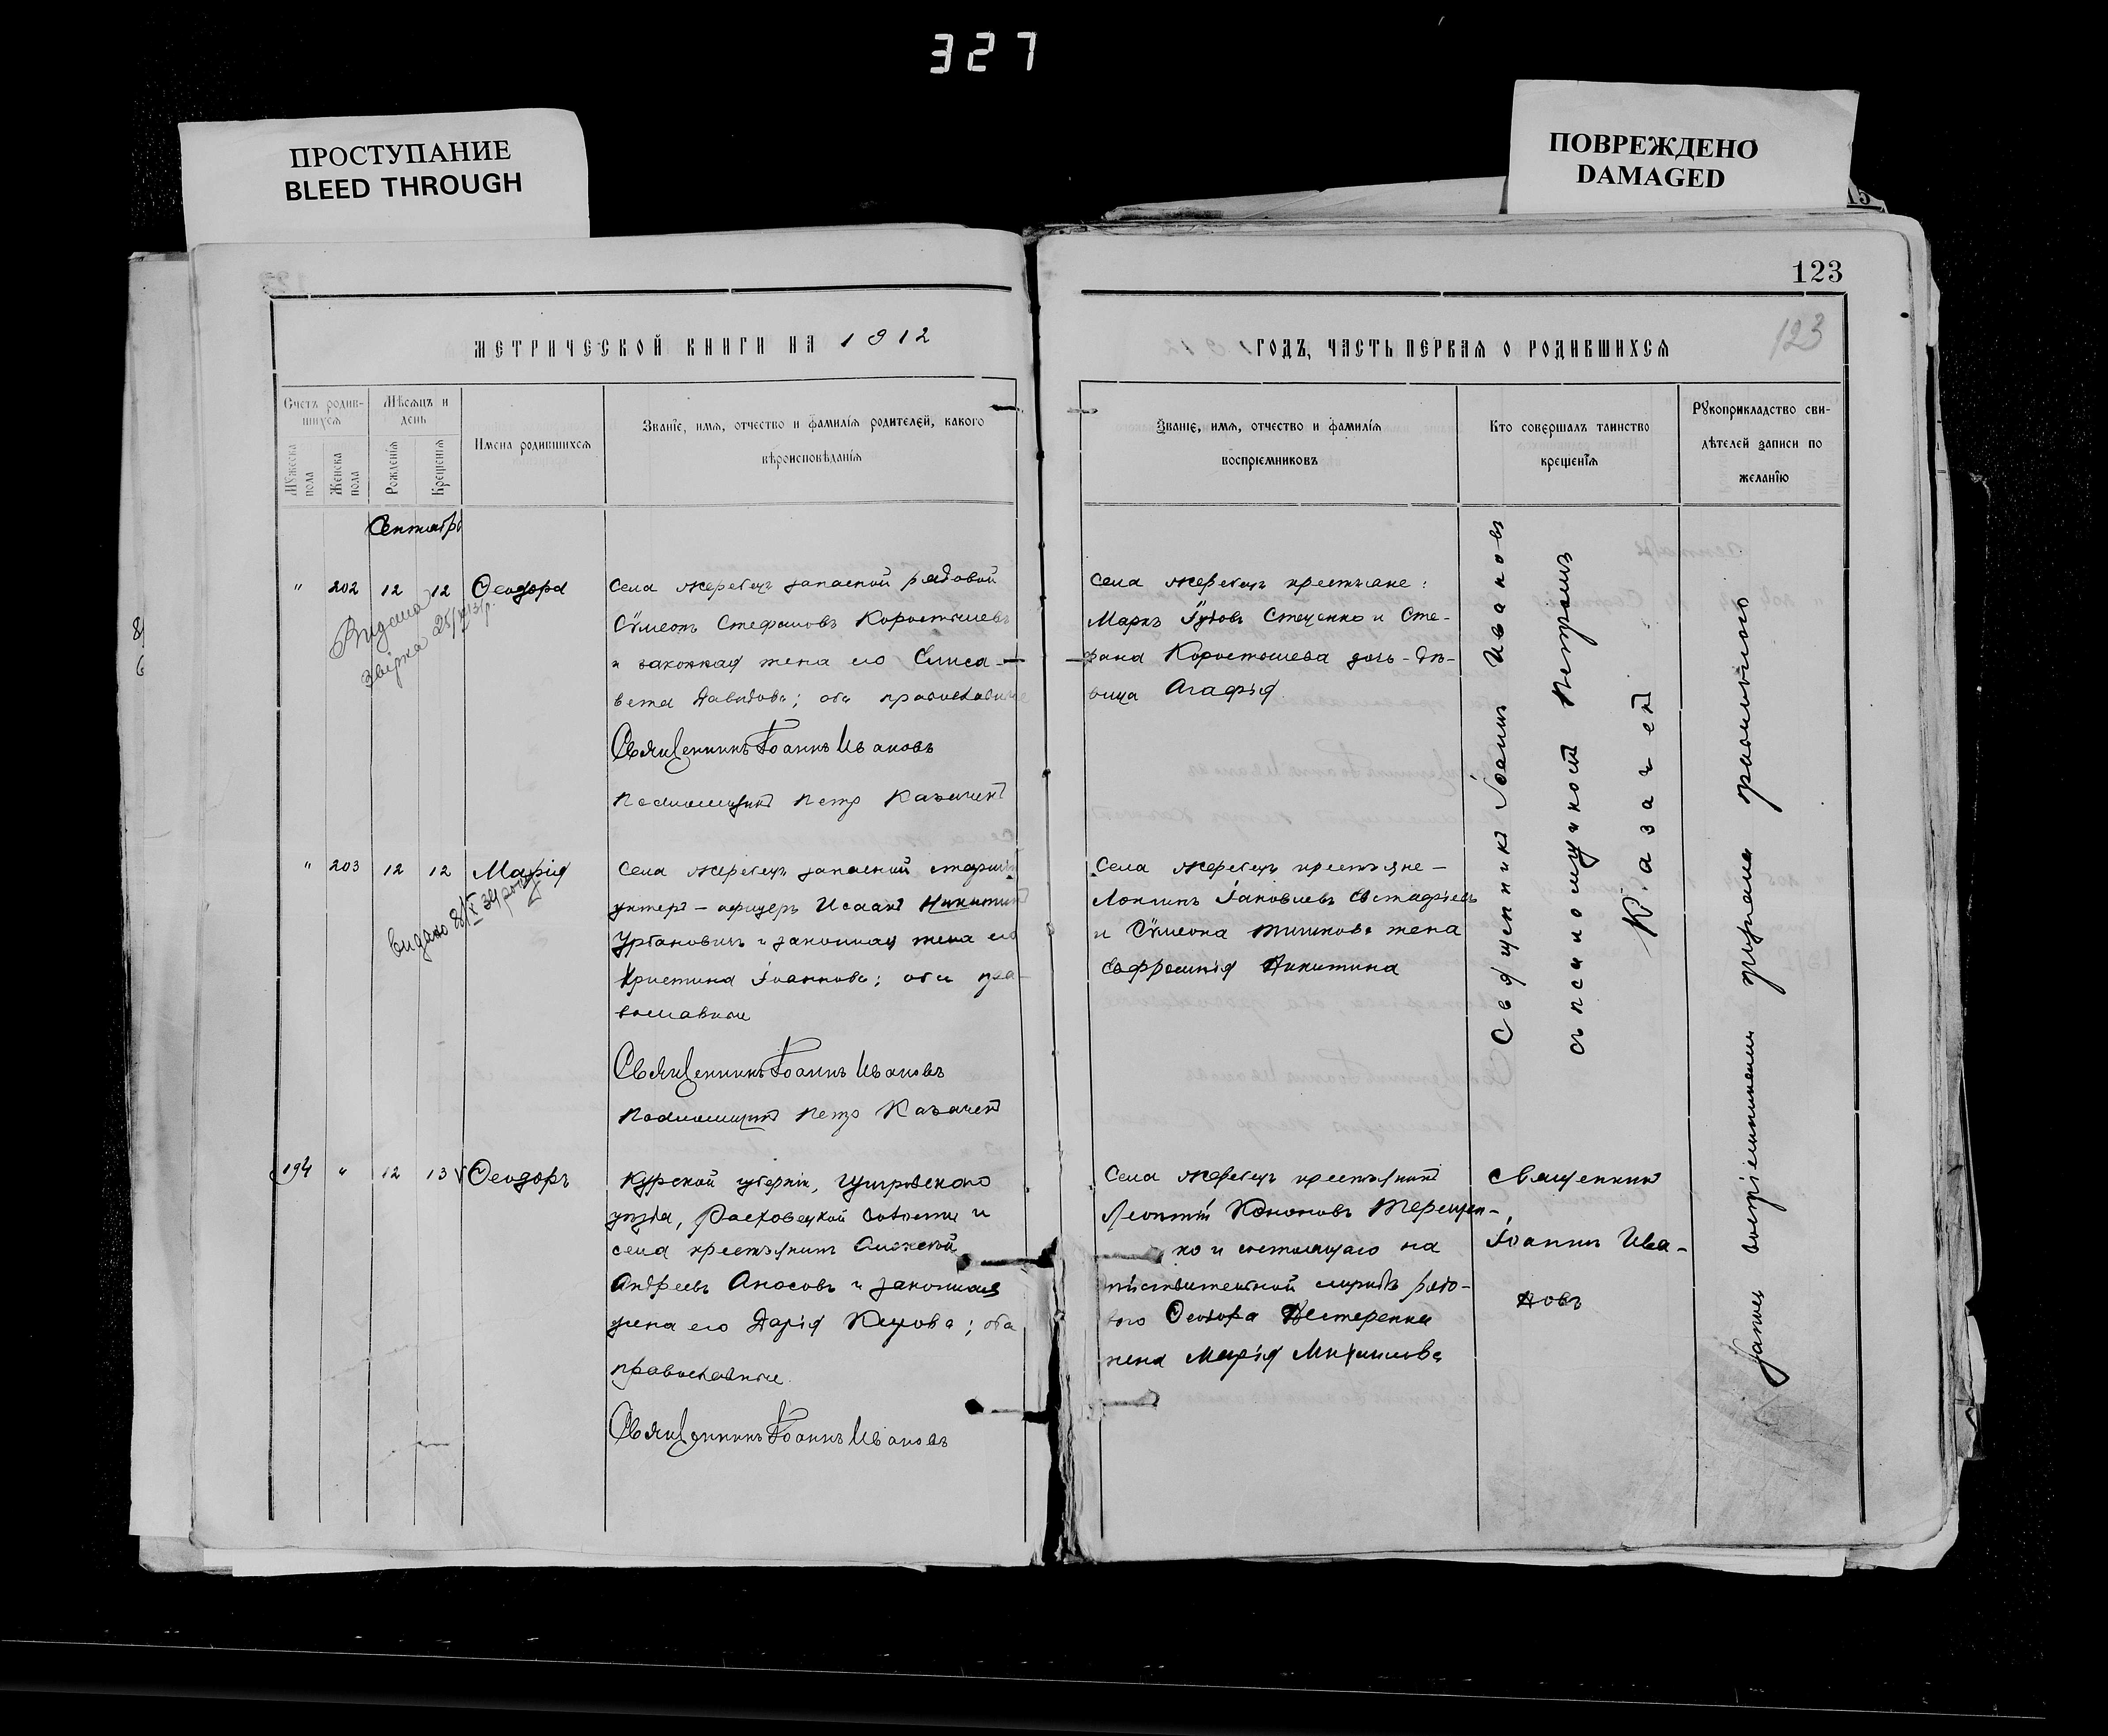 327
ПРОСТУПАНИЕ
BLEED THROUGH
ПОВРЕЖДЕНО
DAMAGED
15
123
123
МЕТРИЧЕСКОЙ КНИГИ НА 1912
ГОДЪ, ЧАСТЬ ПЕРВАЯ О РОДИВШИХСЯ
Счетъ родив-
шихся
Мужеска
пола
Женска
пола
Мѣсяцъ и
день
Рожденія
Крещенія
Имена родившихся
Званіе, имя, отчество и фамилія родителей, какого
вѣроисповѣданія
Званіе, имя, отчество и фамилія
воспріемниковъ
Кто совершалъ таинство
крещенія
Рукоприкладство сви-
дѣтелей записи по
желанію
Сентябрь
" 202 12 12 Ѳеодора
Видана
звірка
Села Жеребецъ запасной рядовой
Сѵмеонъ Стефановъ Коростышевъ
и законная жена его Елиса-
вета Давидова; оба православные
Священникъ Іоаннъ Ивановъ
Псаломщикъ Петръ Казачекъ
Села Жеребецъ крестьяне:
Маркъ Стеценко и Сте-
фана Коростышева дочь-дѣ-
вица Агафія
" 203 12 12 Марія
видано
Села Жеребецъ запасной старшій
унтеръ-офицеръ Исаакъ Никитинъ
Урбановичъ и законная жена его
Христина Іоаннова; оба пра-
вославные
Священникъ Іоаннъ Ивановъ
Псаломщикъ Петръ Казачекъ
Села Жеребецъ крестьяне-
Логгинъ Іаковлевъ Евстафіевъ
и Сѵмеона жена
Евфросинія Никитина
194 " 12 13 Ѳеодоръ
Курской губерніи, Щигровскаго
уѣзда, Расховецкой волости и
села крестьянинъ Алексѣй
Андреевъ Аносовъ и законная
жена его Дарія; оба
православные
Священникъ Іоаннъ Ивановъ
Села Жеребецъ крестьянинъ
Леонтій Кононовъ Терещен-
ко и состоящаго на
дѣйствительной службѣ рядо-
вого Ѳеодора Нестеренка
жена Марія Михаилова
Священникъ Іоаннъ Ивановъ
съ псаломщикомъ Петромъ
Казачекъ
Священникъ
Іоаннъ Ива-
новъ